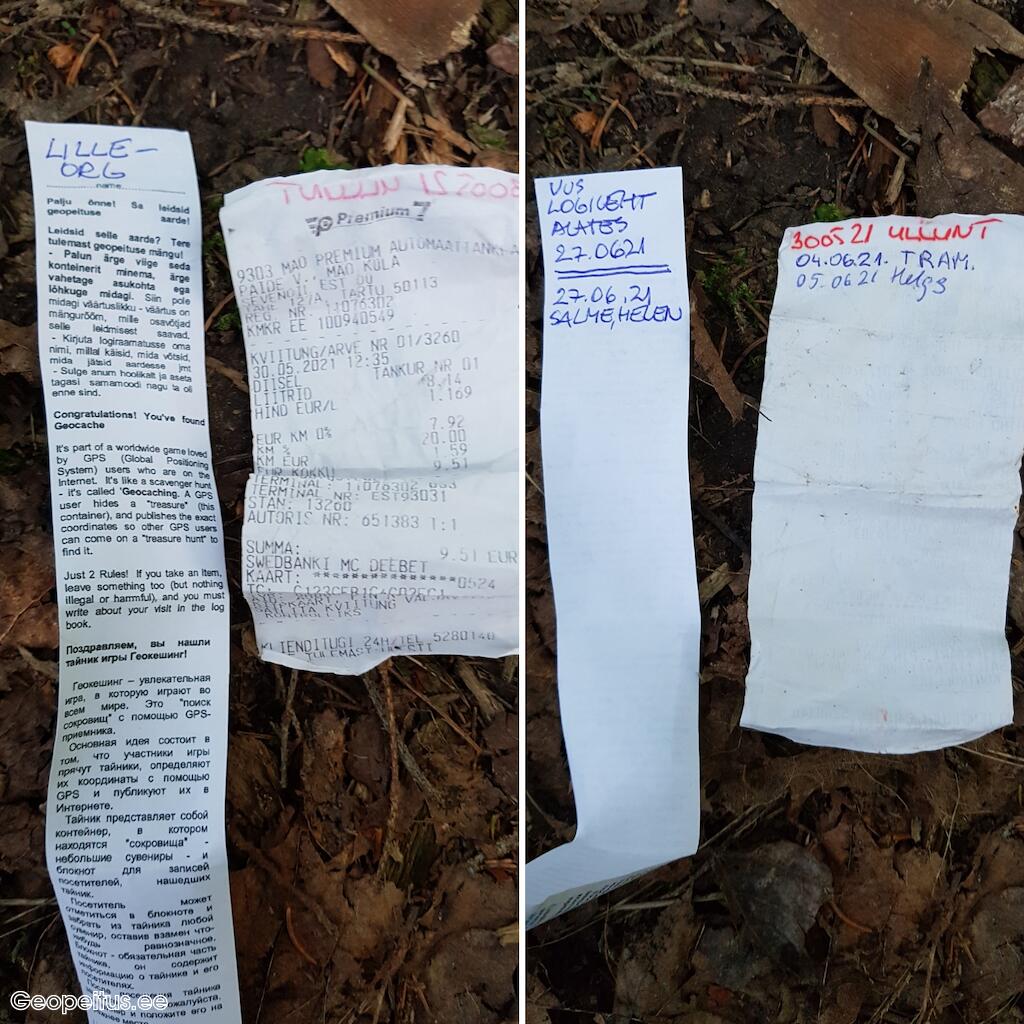 LILLE-
ORG
name
Palju õnne! Sa leidsid
geopeituse aarde!
Leidsid selle aarde? Tere
tulemast geopeituse mängu!
- Palun ärge viige seda
konteinerit minema, ärge
vahetage asukohta ega
lõhkuge midagi. Siin pole
midagi väärtuslikku - väärtus on
mängurõõm, mille osavõtjad
selle leidmisest saavad.
- Kirjuta logiraamatusse oma
nimi, millal käisid, mida võtsid,
mida jätsid aardesse jmt
- Sulge anum hoolikalt ja aseta
tagasi samamoodi nagu ta oli
enne sind.
Congratulations! You've found
Geocache
It's part of a worldwide game loved
by GPS (Global Positioning
System) users who are on the
Internet. It's like a scavenger hunt
- it's called 'Geocaching. A GPS
user hides a "treasure" (this
container), and publishes the exact
coordinates so other GPS users
can come on a "treasure hunt" to
find it.
Just 2 Rules! If you take an item,
leave something too (but nothing
illegal or harmful), and you must
write about your visit in the log
book.
Поздравляем, вы нашли
тайник игры Геокешинг!
Геокешинг – увлекательная
игра, в которую играют во
всем мире. Это "поиск
сокровищ" с помощью GPS-
приемника.
Основная идея состоит в
том, что участники игры
прячут тайники, определяют
их координаты с помощью
GPS и публикуют их в
Интернете.
Тайник представляет собой
контейнер, в котором
находятся "сокровища" -
небольшие сувениры - и
блокнот для записей
посетителей, нашедших
тайник.
Посетитель может
отметиться в блокноте и
забрать из тайника любой
сувенир, оставив взамен что-
нибудь равнозначное.
Блокнот - обязательная часть
тайника, он содержит
информацию о тайнике и его
посетителях.
посещения тайника
пожалуйста,
и положите его на
место
300521 ULLUNT
Premium 7
9303 MÄO PREMIUM AUTOMAATTANKLA
PAIDE V, MÄO KÜLA
SEVENOIL EST OÜ
12/A, TARTU 50113
REG. NR: 11076302
KMKR EE 100940549
KVIITUNG/ARVE NR 01/3260
30.05.2021 12:35
DIISEL TANKUR NR 01
LIITRID 8.14
HIND EUR/L 1.169
EUR KM 0% 7.92
KM % 20.00
KM EUR 1.59
EUR KOKKU 9.51
TERMINAL: 11076302 003
TERMINAL NR: EST93031
STAN: 13260
AUTORIS NR: 651383 1:1
SUMMA: 9.51 EUR
SWEDBANKI MC DEEBET
KAART: ***************0524
KLIENDITUGI 24H/TEL 5280140
UUS
LOGILEHT
ALATES
27.0621
27.06.21
SALME, HELEN
300521 ULLUNT
04.06.21. TRAM.
05.0621 Helgs
Geopeitus.ee